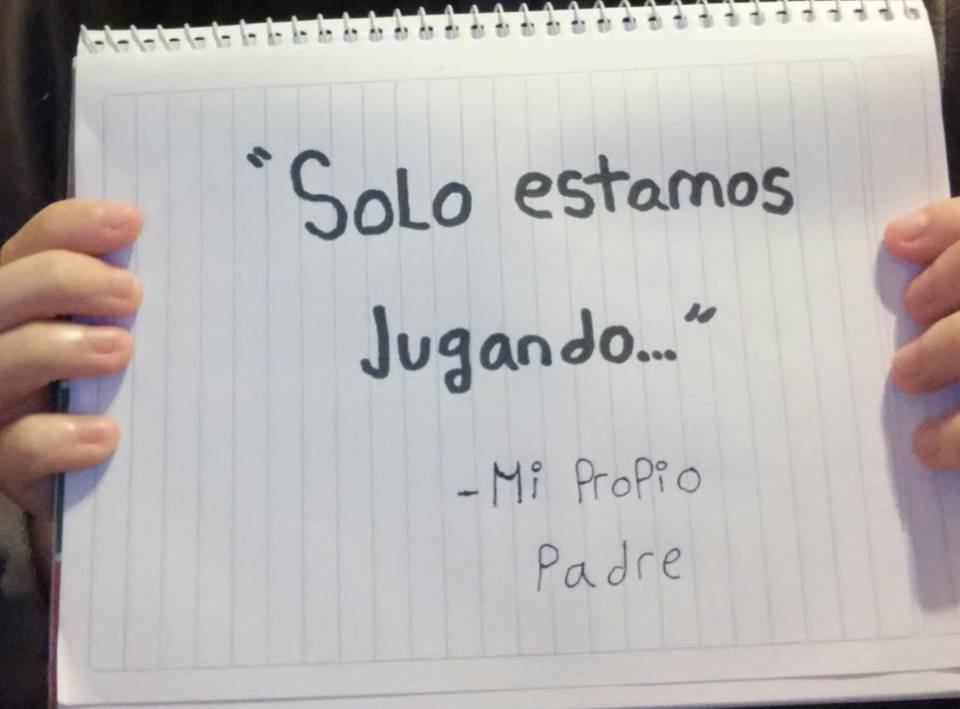 "Solo estamos
Jugando..."
- Mi Propio
Padre